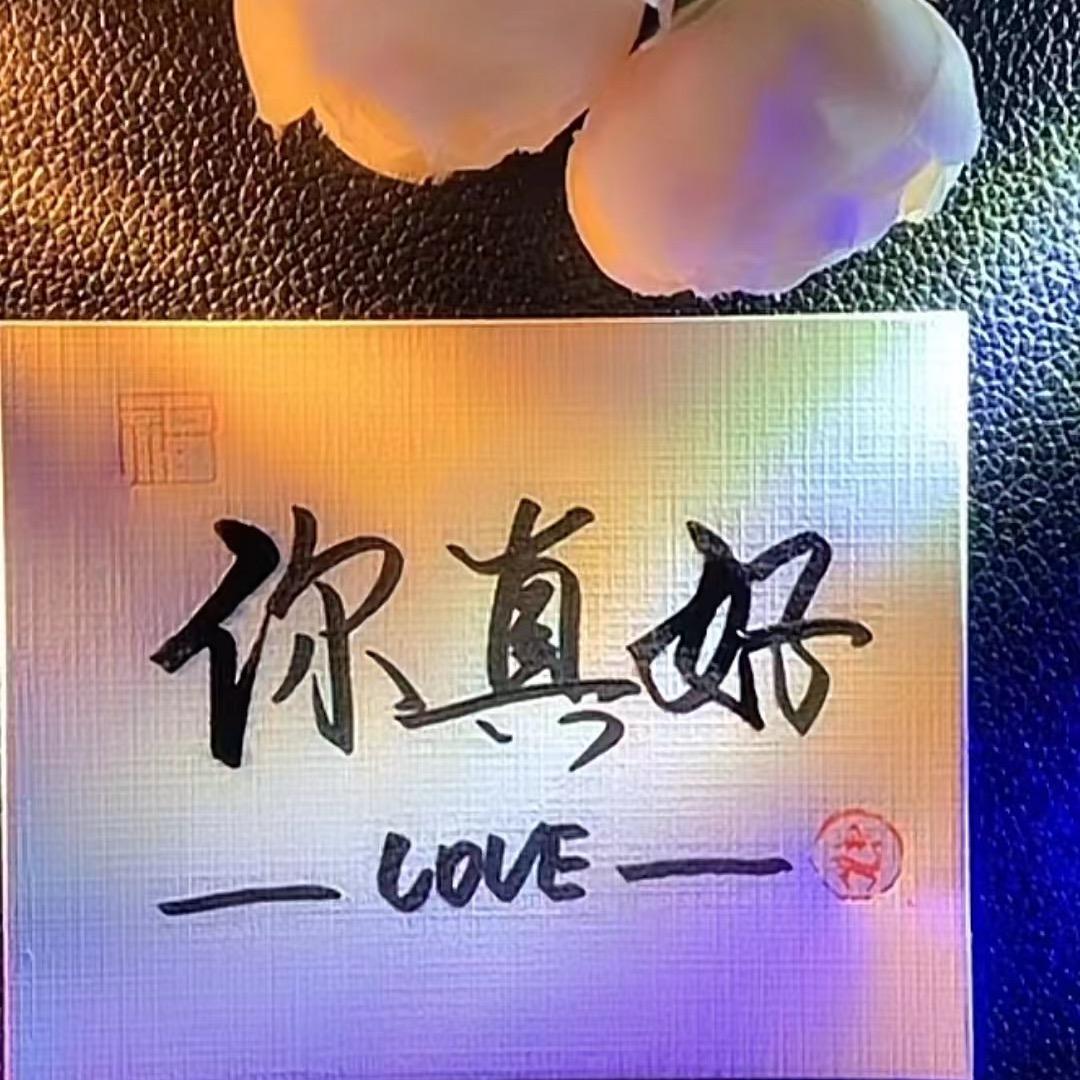 福
你真好
LOVE